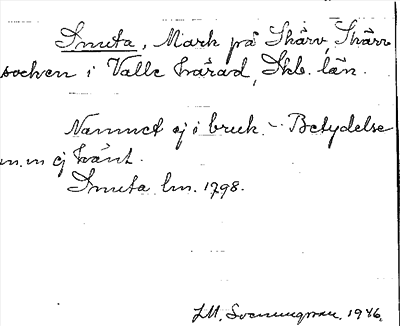 Smuta, Mark på Skärv, Skärv
socken i Valle härad, Skb. län.
Namnet ej i bruk. - Betydelse
m.m ej känt.
Smuta lm. 1798.
J.M. Svenungsson. 1946.